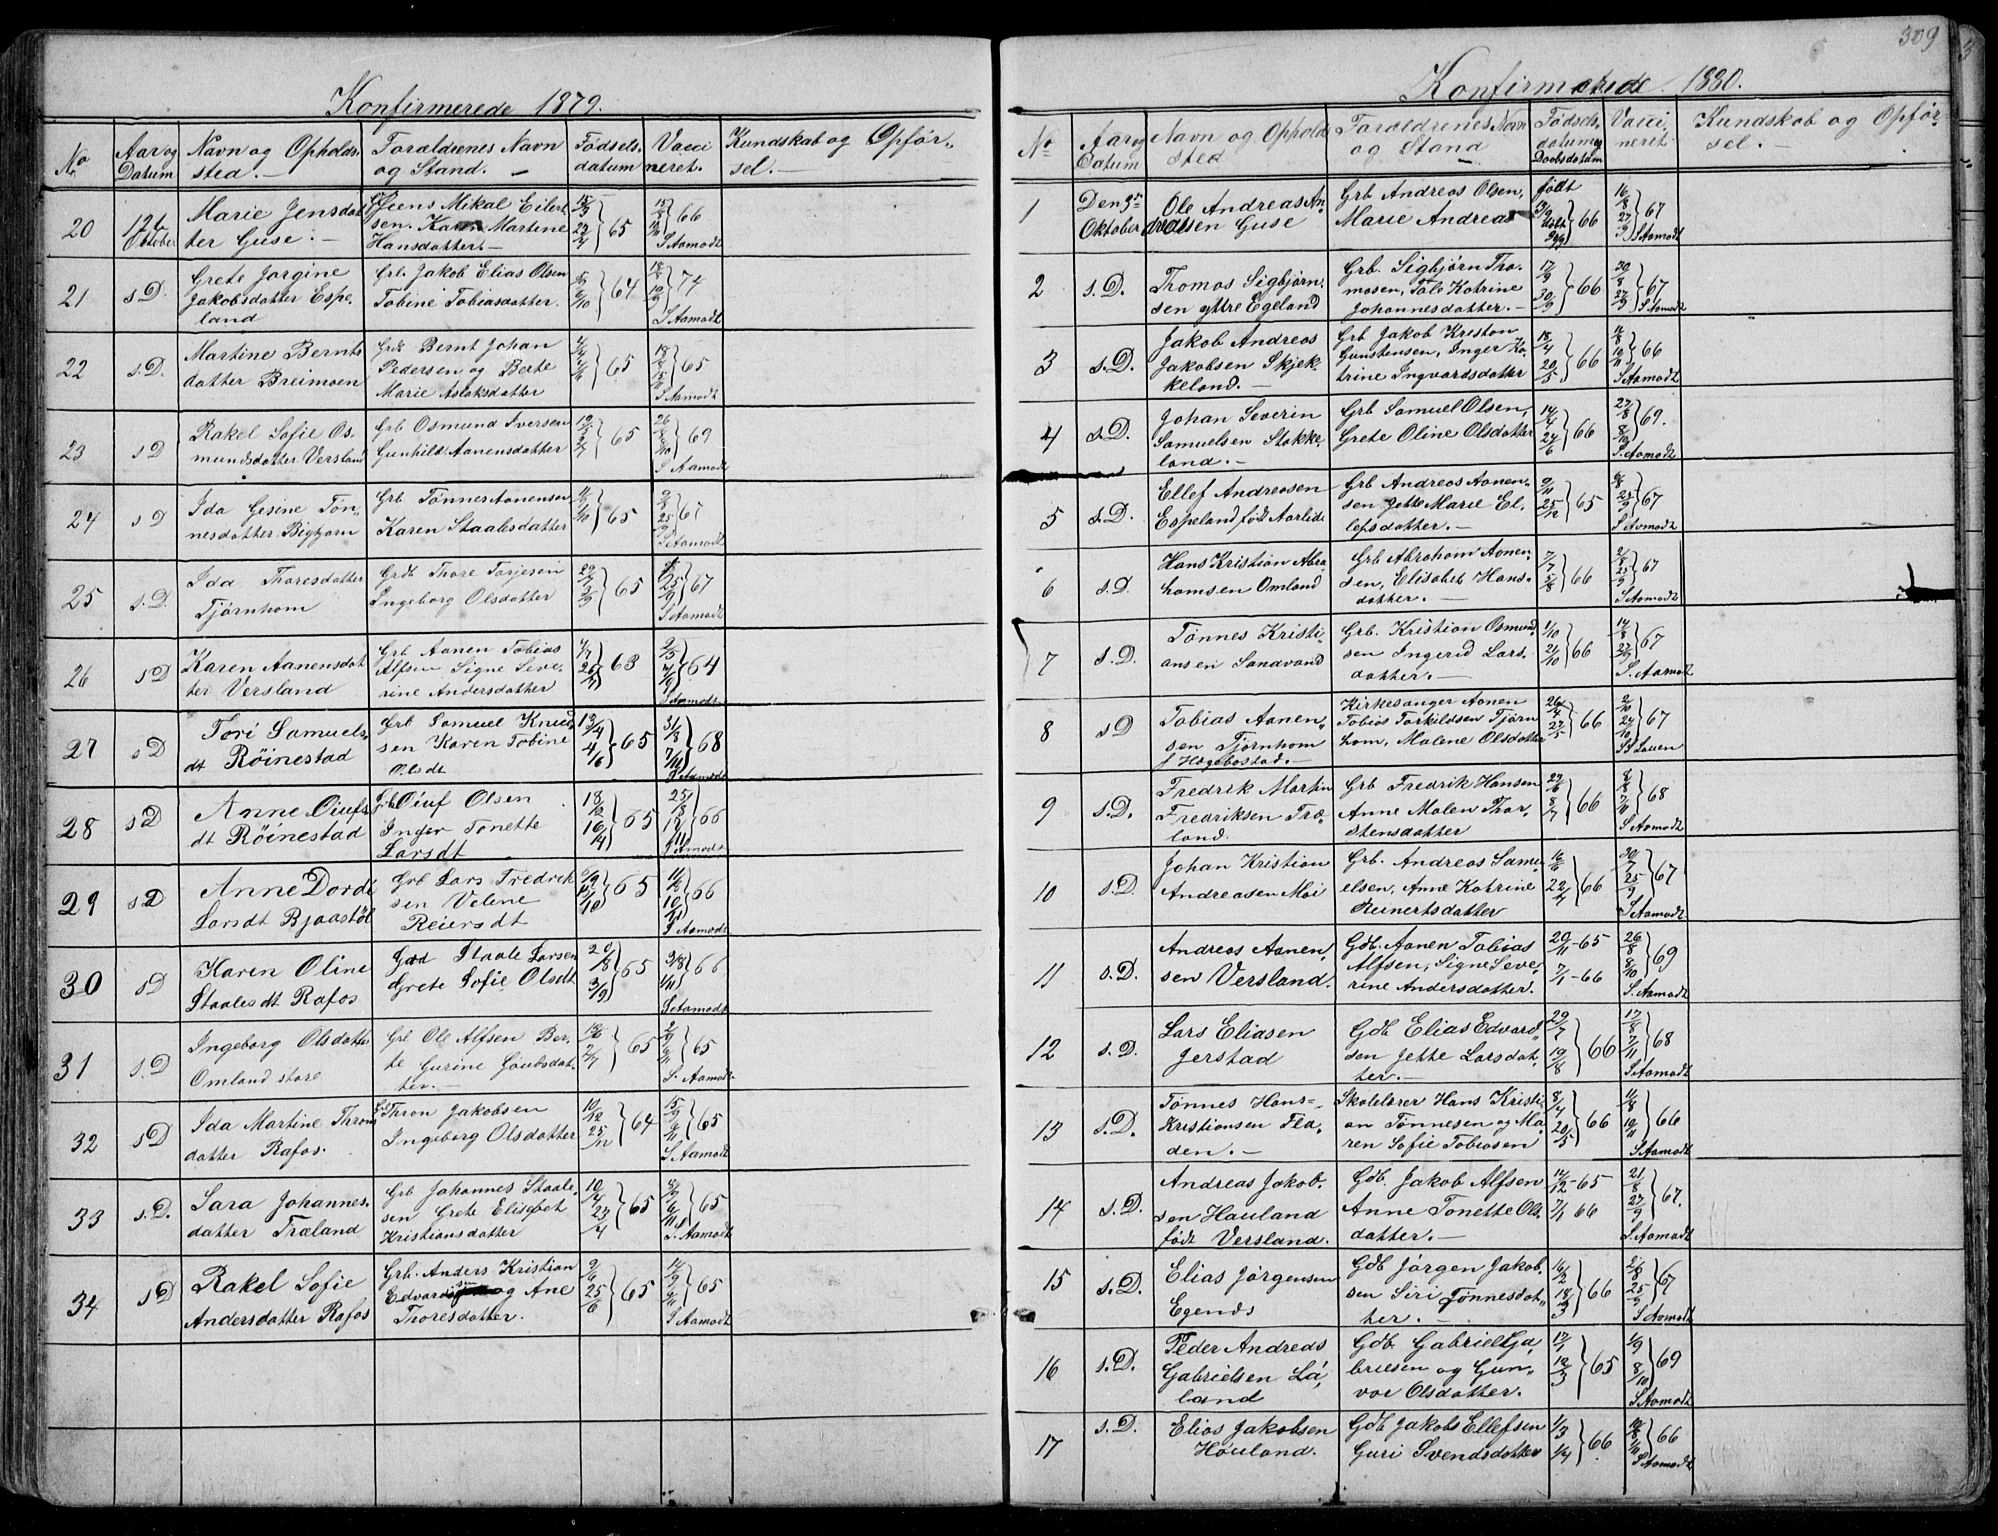 309
Konfirmerede 1879.
No
Aar og Datum
Navn og Opholdssted.
Forældrenes Navn og Stand.
Fødselsdatum
Vaccineret.
Kundskab og Opførsel.
20
12te Oktober
Marie Jensdat
ter Guse.
Jens Mikal Eilert
sen. Karen Martine
Hansdatter.
65
66
S Aamodt
21
s D.
Grete Jørgine
Jakobsdatter Espe
land
Grb Jakob Elias Olsen
Tobine Tobiasdatter.
64
74
S Aamodt
22
s. D.
Martine Bernts
datter Breimoen
Grb Bernt Johan
Pedersen og Berte
Marie Aslaksdatter
65
65
S Aamodt
23
s D
Rakel Sofie Os
mundsdatter Versland
Grb Osmund Iversen
Gunhild Aanensdatter
65
69
S Aamodt
24
s D
Ida Gesine Tøn
nesdatter Bigtjørn
Grb Tønnes Aanensen
Karen Staalsdatter
65
67
S Aamodt
25
s. D.
Ida Thoresdatter
Tjørnhom
Grdb Thore Torjesen
Ingeborg Olsdatter
65
67
S Aamodt
26
s D
Karen Aanensdat
ter Versland
Grb Aanen Tobias
Alfsen Signe Seve
rine Andersdatter
63
64
S Aamodt
27
s D
Tori Samuels
dt Røinestad
Grb Samuel Knud
sen Karen Tobine
Olsdt
13/4
4/6
65
31/8
7/11
68
S Aamodt
28
s D
Anne Oiufs
dt Röinestad
Grb Oiuf Olsen
Inger Tonette
Larsdt
18/2
16/4
65
66
S Aamodt
29
s D
Anne Dordi
Larsdt Bjaastøl
Grb Lars Fredrik
sen Velene
Reiersdt
65
66
S Aamodt
30
s D
Karen Oline
Staalesdt Rafos
Grd Staale Larsen
Grete Sofie Olsdt
20/8
3/9
65
66
S Aamodt
31
s. D
Ingeborg Olsdatter
Omland store
Grb Ole Alfsen Ber
te Gurine Gaubsdat
ter.
65
65
S. Aamodt
32
s D
Ida Martine Throns
datter Rafos.
Thron Jakobsen
Ingeborg Olsdatter
10/12
64
65
S Aamodt
33
s. D.
Sara Johannes
datter Traland
Grb Johannes Staale
sen Grete Elisabet
Kristiansdatter
10/4
23/4
65
65
S. Aamodt
34
s D
Rakel Sofie
Andersdatter Rafos
Grb. Anders Kristian
Edvardsen og Ane
Thoresdatter.
2/6
25/6
65
65
S Aamodt
Konfirmerede 1880.
No
Aar og Datum
Navn og Opholdssted
Forældrenes Navn og Stand
Fødselsdatum og Daabsdatum
Vaccineret
Kundskab og Opførsel.
1
Den 3die
Oktober
Ole Andreas An
dreassen Guse
Grb Andreas Olsen,
Marie Andreas
født
66
67
S Aamodt
2
s. D.
Thomas Sigbjørn
sen yttre Egeland
Grb. Sigbjørn Tho
masen, Tale Katrine
Johannesdatter.
17/9
30/9
66
67
S Aamodt
3
s. D.
Jakob Andreas
Jakobsen Skjek
keland.
Grb Jakob Kristen
Gunstensen, Inger Ka
trine Ingvardsdatter
18/4
20/5
66
66
S Aamodt
4
s. D.
Johan Severin
Samuelsen Stokke
land.
Grb Samuel Olsen,
Grete Oline Olsdatter
66
69.
S. Aamodt
5
s. D.
Ellef Andreasen
Espeland født Aarlide
Grb Andreas Aanen
sen Jette Marie El
lefsdatter.
9/11
25/12
65
67
S Aamodt
6
s. D.
Hans Kristian Abra
hamsen Omland
Grb Abraham Aanen
sen, Elisabeb Hans
datter.
7/7
5/8
66
67
S Aamodt
7
s. D
Tønnes Kristi
ansen Sandvand
Grb. Kristian Osmund
sen Ingerid Lars
datter.
1/10
21/10
66
67
S. Aamodt
8
s D
Tobias Aanen
sen Tjørnhom
f Hægebostad.
Kirkesanger Aanen
Tobias Torkildsen Tjørn
hom, Malene Olsdatter
26/4
27/5
66
67
9
s. D.
Fredrik Martin
Fredriksen Træ
land.
Grb Fredrik Hansen
Anne Malen Thor
stensdatter
66
68
S Aamodt
10
s. D.
Johan Kristian
Andreasen Moi
Grb. Andreas Samu
elsen, Anne Katrine
Reinertsdatter
66
67
S Aamodt
11
s. D.
Andreas Aanen
sen Versland.
Gdb. Aanen Tobias
Alfsen, Signe Seve
rine Andersdatter.
20/11-65
7/1-66
26/8
8/10
69
S. Aamodt
12
s. D.
Lars Eliasen
Jerstad
Gdb Elias Edvard
sen Jette Larsdat
ter.
29/7
19/8
66
17/8
7/11
68
S Aamodt
13
s. D.
Tønnes Hans
Kristiansen Fla
den.
Skolelærer Hans Kristi
an Tønnesen og Ma
ren Sofie Tobiasen
8/4
20/5
66
66
S Aamodt
14
s. D.
Andreas Jakob
sen Hauland
født Versland.
Gdb. Jakob Alfsen
Anne Tonette Ols
datter.
-65
7/1 66
21/8
27/9
67.
S. Aamodt
15
s. D.
Elias Jörgensen
Egends
Gdb Jörgen Jakob
sen Siri Tønnesdat
ter.
16/2
18/3
66
67
S Aamodt
16
s. D.
Peder Andreas
Gabrielsen Lá
land
Gdb Gabriel Ga
brielsen og Gun
vor Olsdatter.
65
1/9
8/10
69
S Aamodt
17
s. D.
Elias Jakobsen
Høuland.
Gdb Jakob Ellefsen
Guri Svendsdatter
1/3
1/4
66
66
S Aamodt